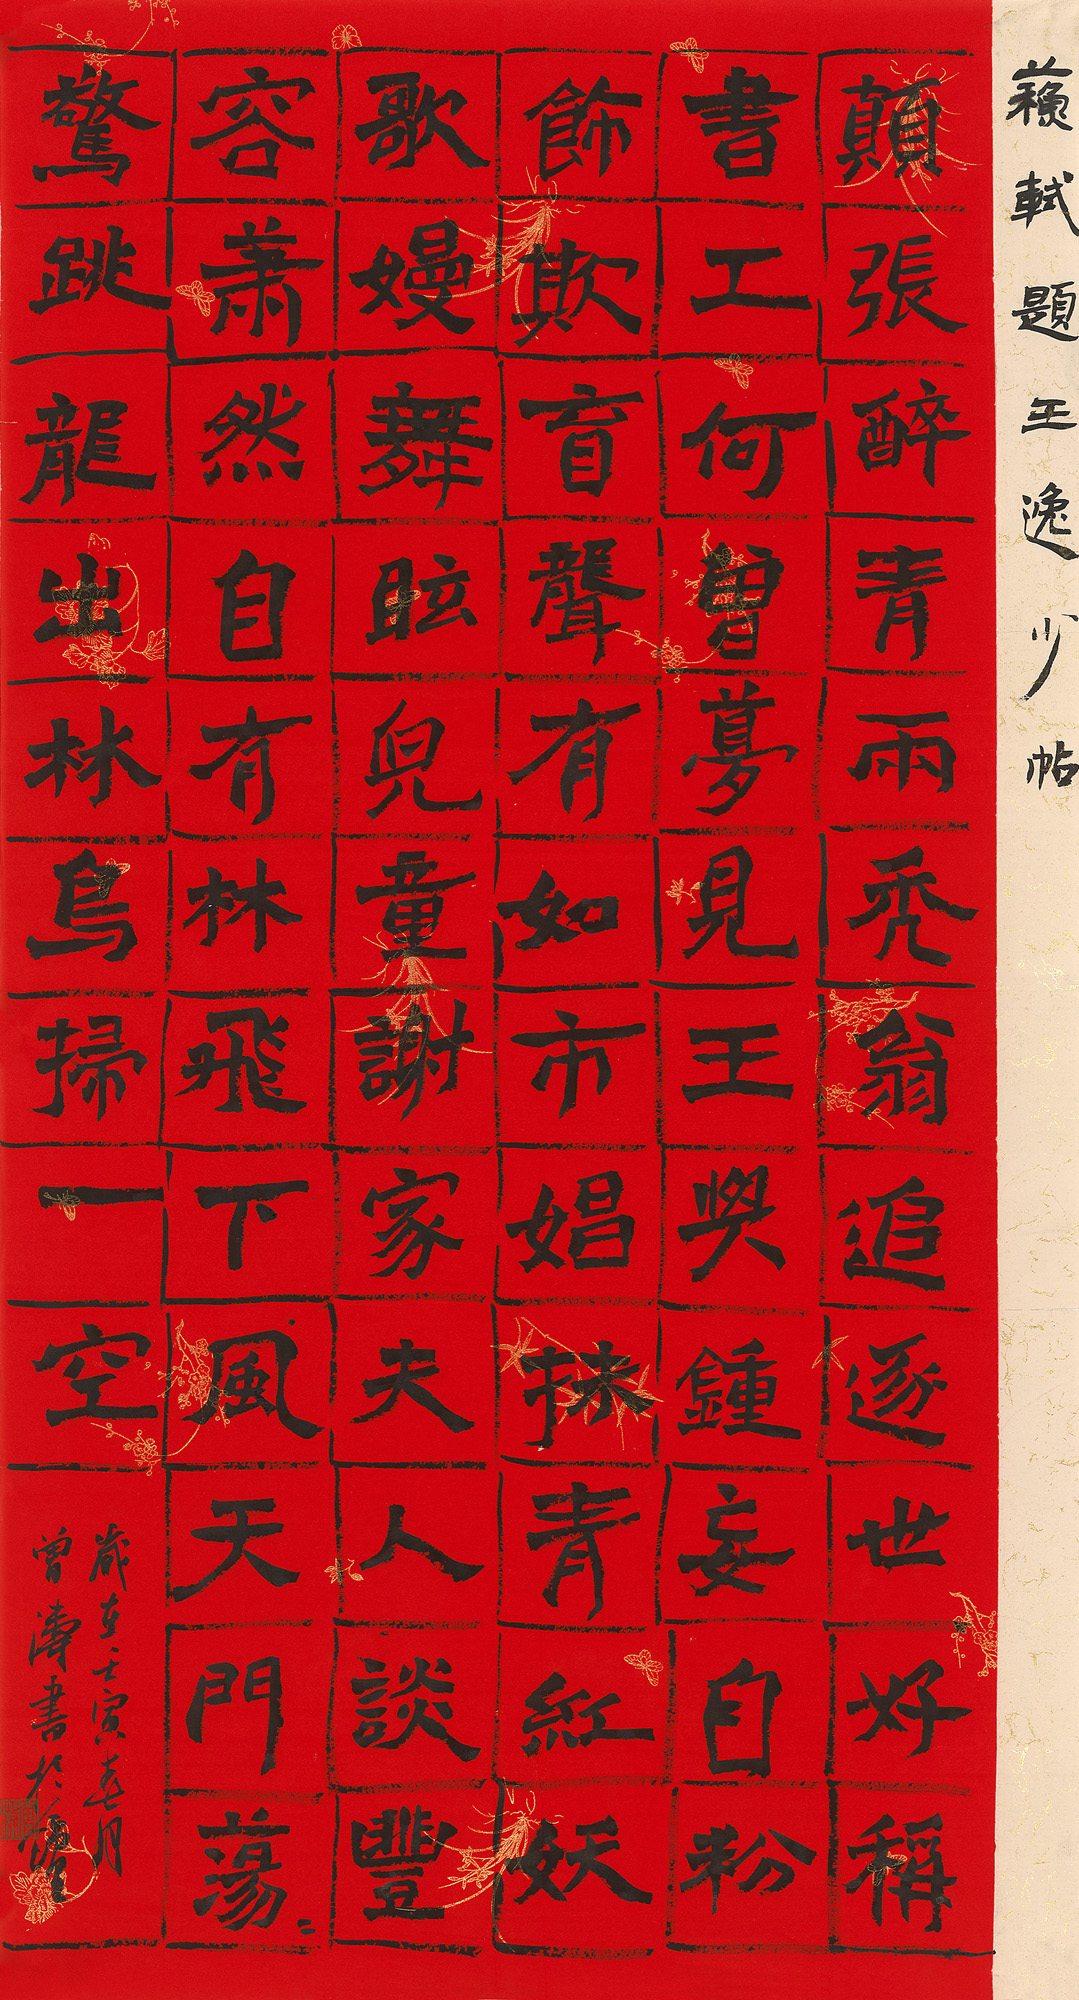 蘓軾題王逸少帖
顛張醉青兩禿翁追逐世好稱
書工何曾夢見王奬鍾妄自粉
飾欺盲聾有如市娼抹青紅妖
歌嫚舞眩兒童謝家夫人談豐
容蕭然自有林飛下風天門蕩〻
驚跳龍出林鳥掃一空
歲在壬寅春月
曾濤書於